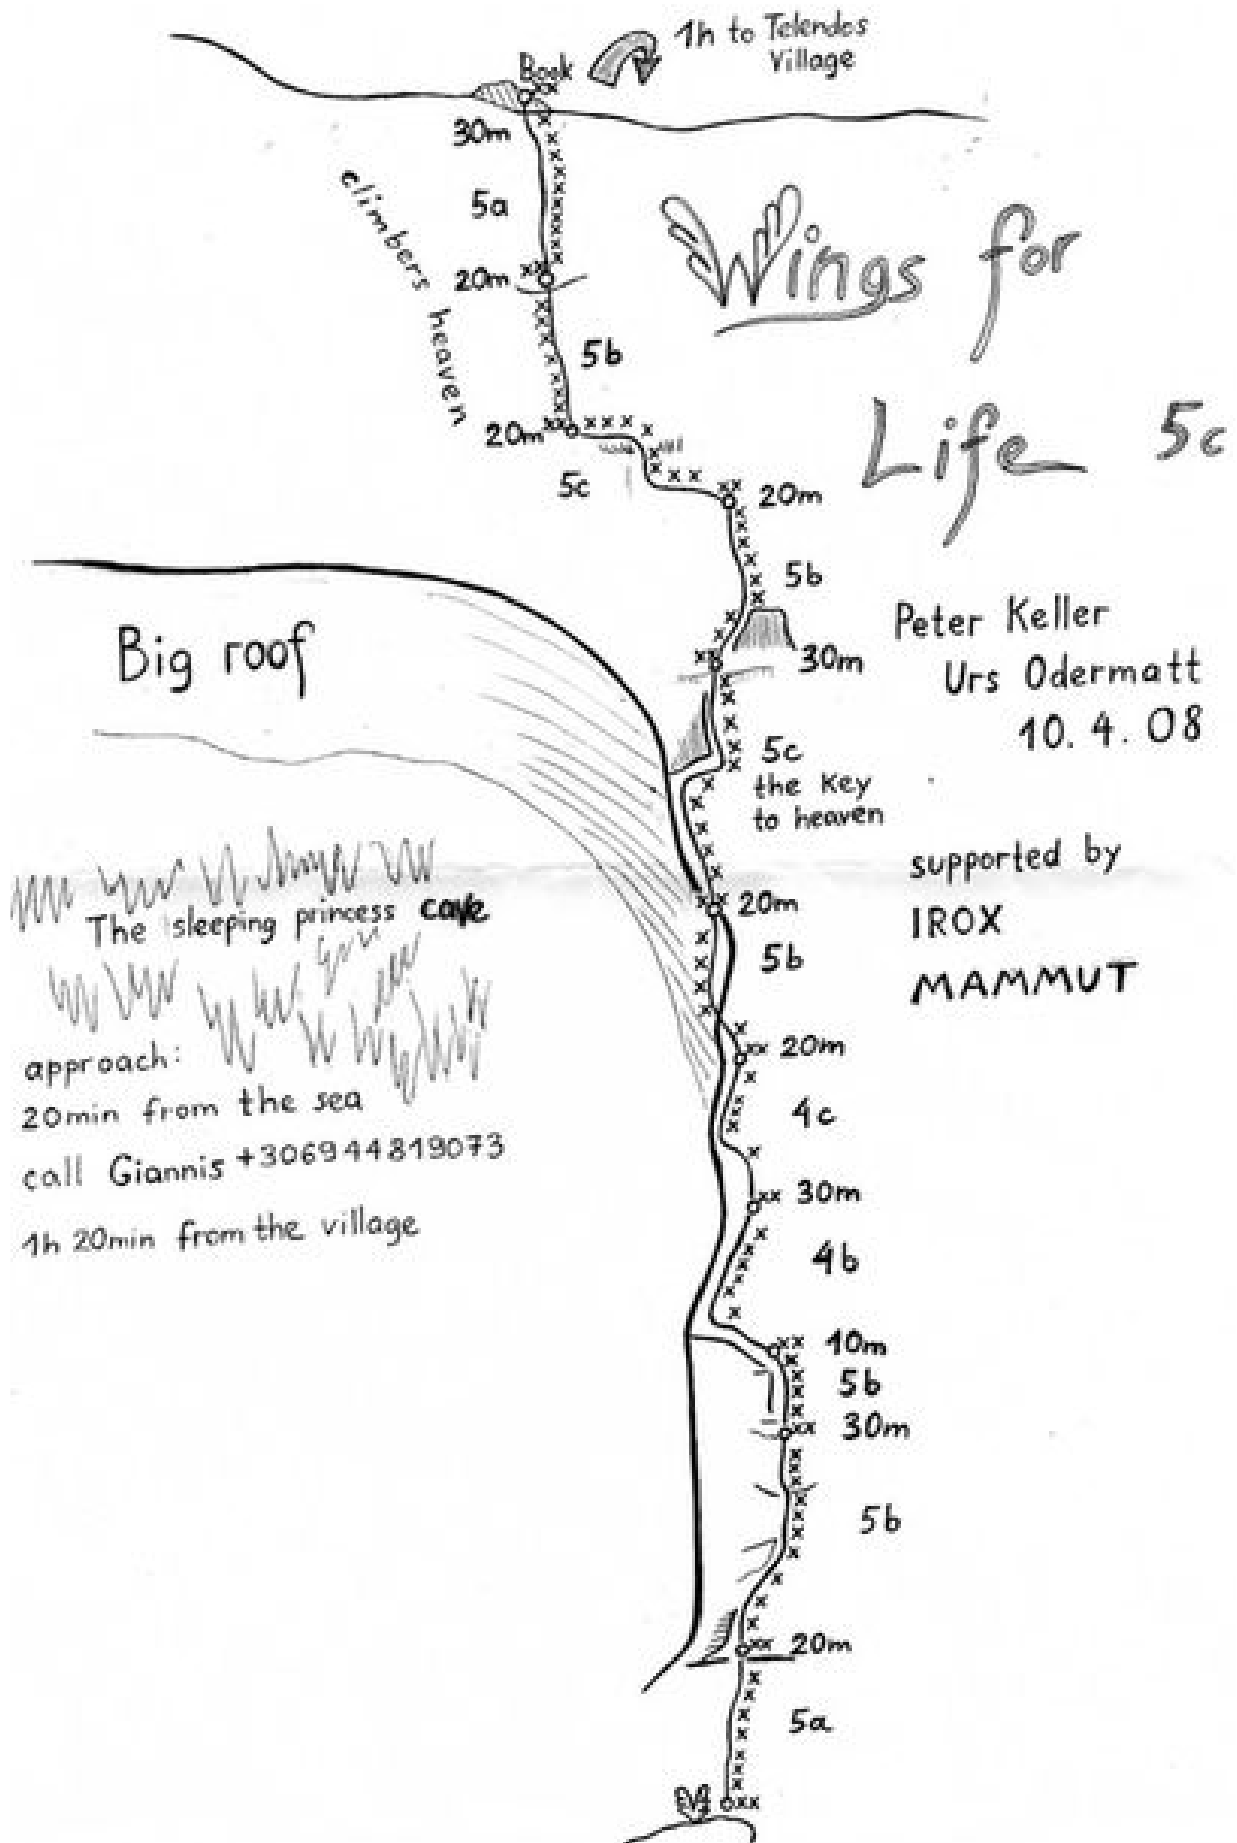 1h to Telendos
Village
Book
30m
5a
climbers heaven
20m
5b
20m
5c
Wings for
Life 5c
20m
5b
30m
Big roof
Peter Keller
Urs Odermatt
10.4.08
5c
the Key
to heaven
supported by
IROX
MAMMUT
The sleeping princess cave
20m
5b
approach:
20min from the sea
call Giannis +306944819073
1h 20min from the village
20m
4c
30m
4b
10m
5b
30m
5b
20m
5a